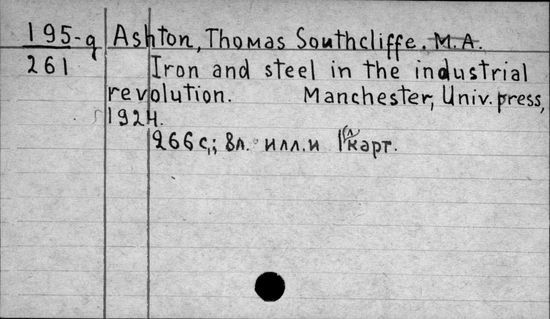 195-g Ashton, Thomas Southcliffe. M.A.
261 Iron and steel in the industrial
revolution. Manchester, Univ. press,
1924.
266 с.; 8л. илл. и 1 л карт.